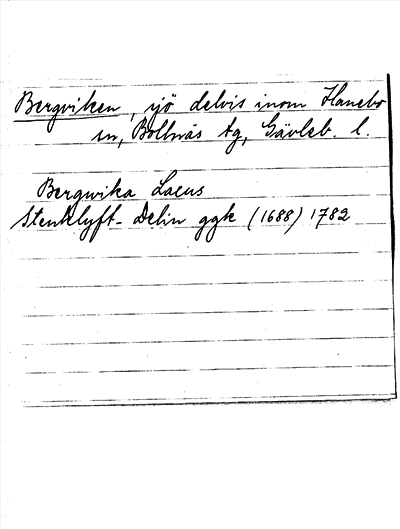 Bergviken, sjö delvis inom Hanebo
sn, Bollnäs tg, Gävleb. l.
Bergwika Lacus
Stenklyft-Delin ggk (1688) 1782